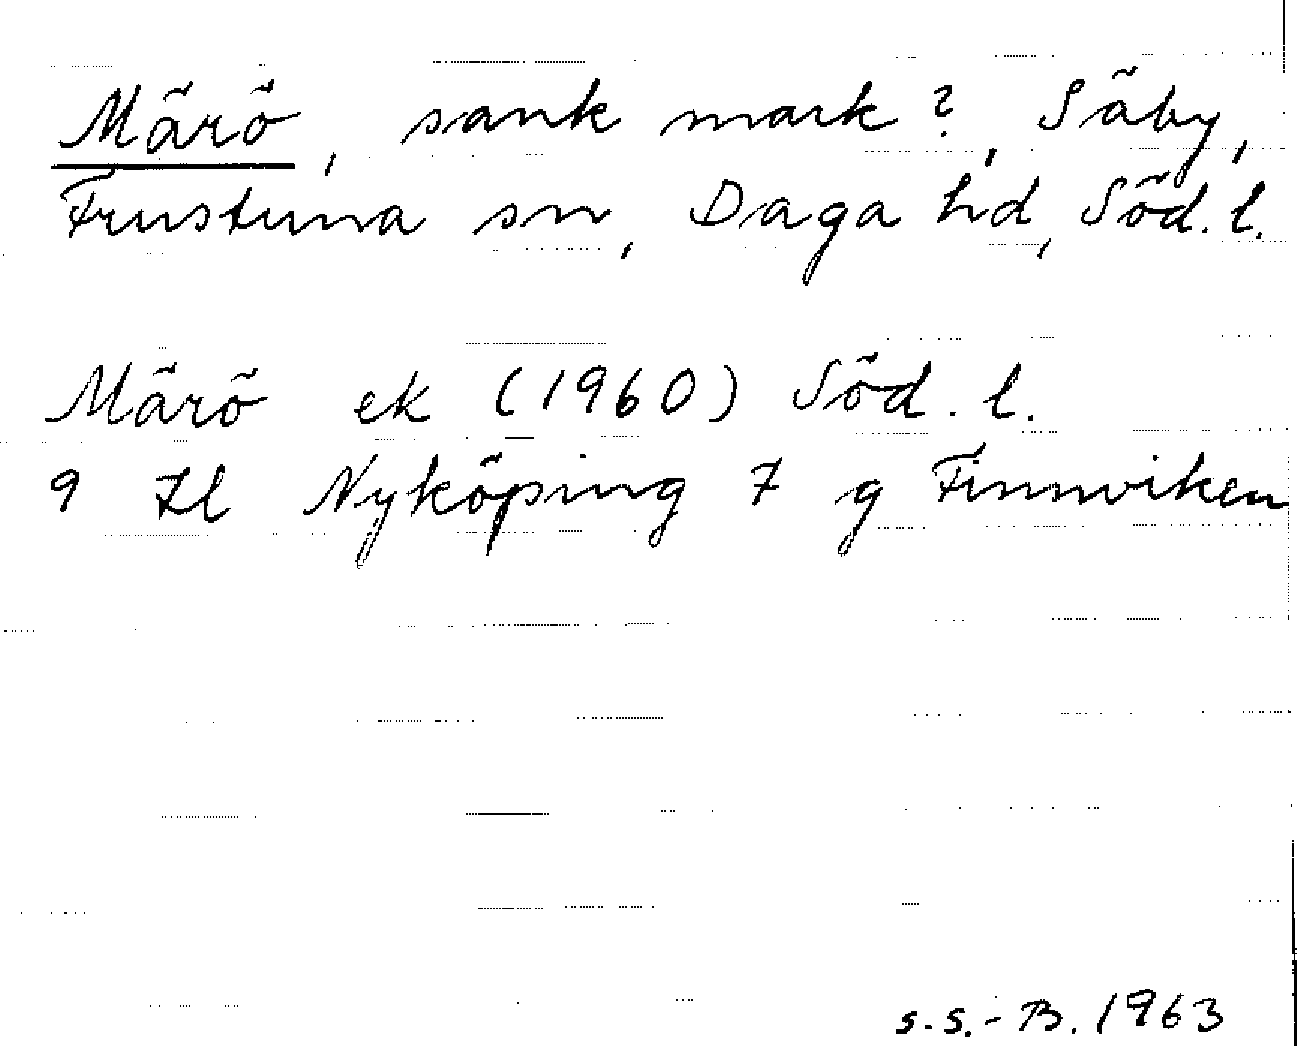 Märö, sank mark?, Säby,
Frustuna sn, Daga hd, Söd. l.
Märö ek (1960) Söd. l.
9 Il Nyköping 7 g Finnviken
s.s.-B. 1963